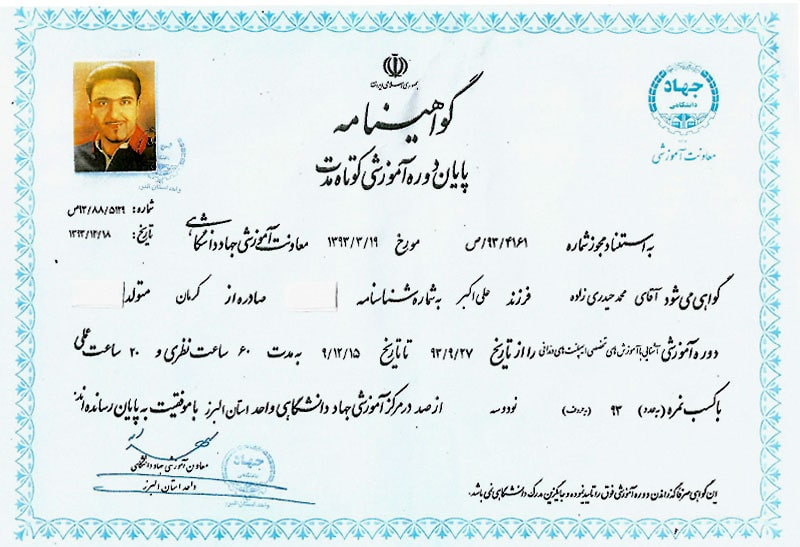 جمهوری اسلامی ایران
گواهینامه
پایان دوره آموزشی کوتاه مدت
جهاد
دانشگاهی
معاونت آموزشی
واحد استان البرز
شماره: ۹۳/۸۸/۵۱۲۹ص
تاریخ: ۱۳۹۳/۱۲/۱۸
به استناد مجوز شماره ۹۳/۴۱۶۱/ص مورخ ۱۳۹۳/۳/۱۹ معاونت آموزشی جهاد دانشگاهی
گواهی می شود آقای محمد حیدری زاده فرزند علی اکبر به شماره شناسنامه صادره از کرمان متولد
دوره آموزشی آشنایی با آموزش های تخصصی ایمپلنت های دندانی را از تاریخ ۹۳/۹/۲۷ تا تاریخ ۹/۱۲/۱۵ به مدت ۶۰ ساعت نظری و ۲۰ ساعت عملی
با کسب نمره (به عدد) ۹۳ (به حروف) نود و سه از صد در مرکز آموزشی جهاد دانشگاهی واحد استان البرز با موفقیت به پایان رسانده اند.
معاون آموزشی جهاد دانشگاهی
واحد استان البرز
جهاد
دانشگاهی
واحد استان البرز
این گواهی صرفا گذراندن دوره آموزشی فوق را تایید نموده و جایگزین مدرک دانشگاهی نمی باشد.